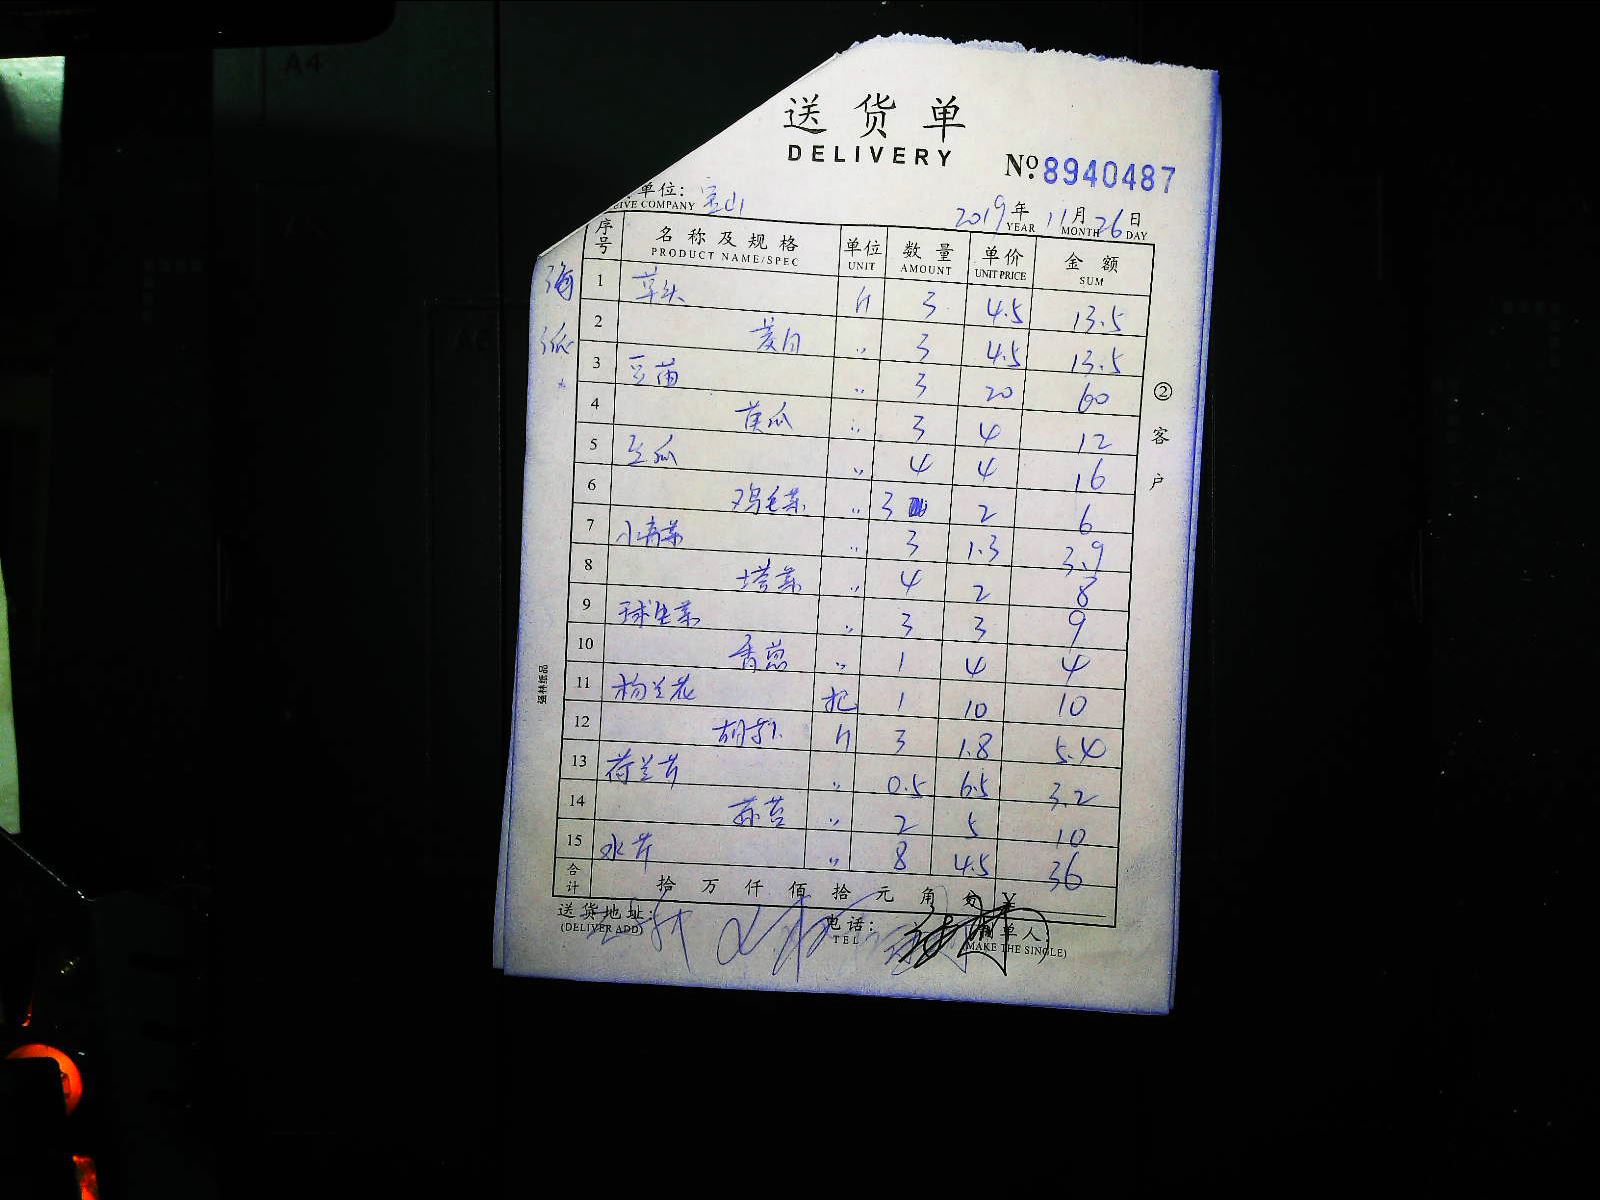 送货单
DELIVERY
No: 8940487
单位: 宝山
EIVE COMPANY
2019年 11月 26日
YEAR MONTH DAY
序号 名称及规格 单位 数量 单价 金额
PRODUCT NAME/SPEC UNIT AMOUNT UNIT PRICE SUM
1 草头 斤 3 4.5 13.5
2 茭白 〃 3 4.5 13.5
3 豆苗 〃 3 20 60
4 黄瓜 〃 3 4 12
5 丝瓜 〃 4 4 16
6 鸡毛菜 〃 3 2 6
7 小青菜 〃 3 1.3 3.9
8 塔菜 〃 4 2 8
9 球生菜 〃 3 3 9
10 香葱 〃 1 4 4
11 杨兰花 把 1 10 10
12 胡 斤 3 1.8 5.4
13 荷兰芹 〃 0.5 6.5 3.2
14 蒜苔 〃 2 5 10
15 水芹 〃 8 4.5 36
合计 拾 万 仟 佰 拾 元 角 分 ¥
送货地址: 电话: 制单人:
(DELIVER ADD) TEL (MAKE THE SINGLE)
海
派
②客户
强林纸品
A4